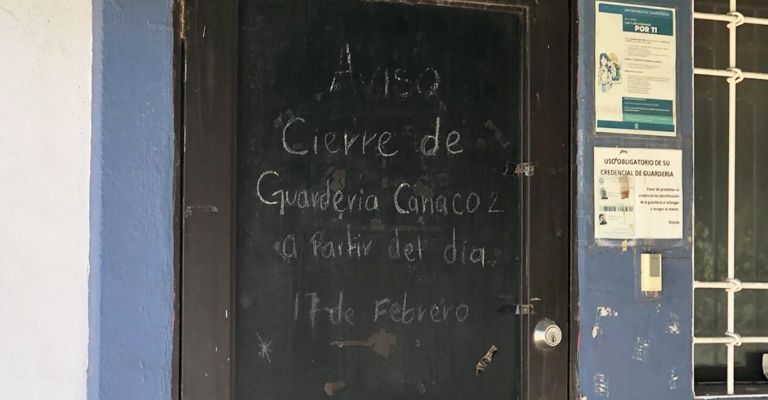 Aviso
Cierre de
Guardería Canaco 2
a Partir del día
17 de Febrero
POR TI
USO OBLIGATORIO DE SU
CREDENCIAL DE GUARDERIA
Favor de presentar su
credencial de identificación
de la guardería al entregar
y recoger al menor.
Gracias